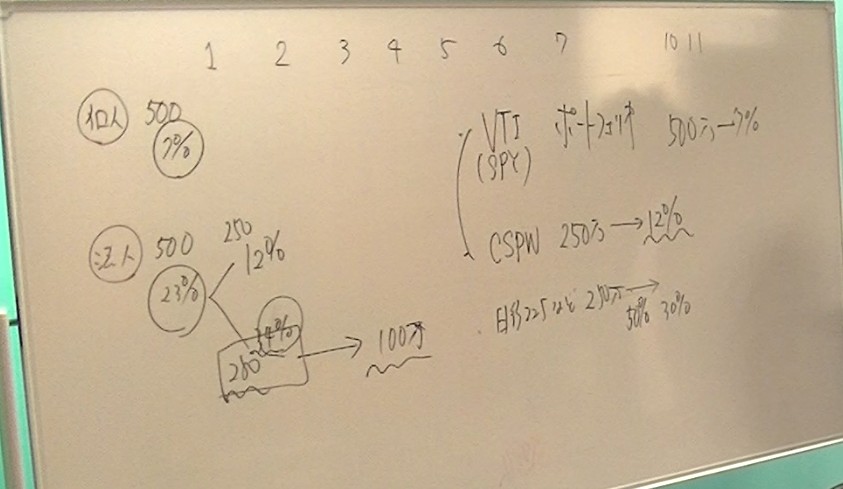 1 2 3 4 5 6 7 10 11
個人 500
7%
VTI ポートフォリオ 500万→7%
(SPY)
法人 500 250
23% 12%
CSPW 250万→12%
34%
260 → 100万
日経225 250万→
50% 30%